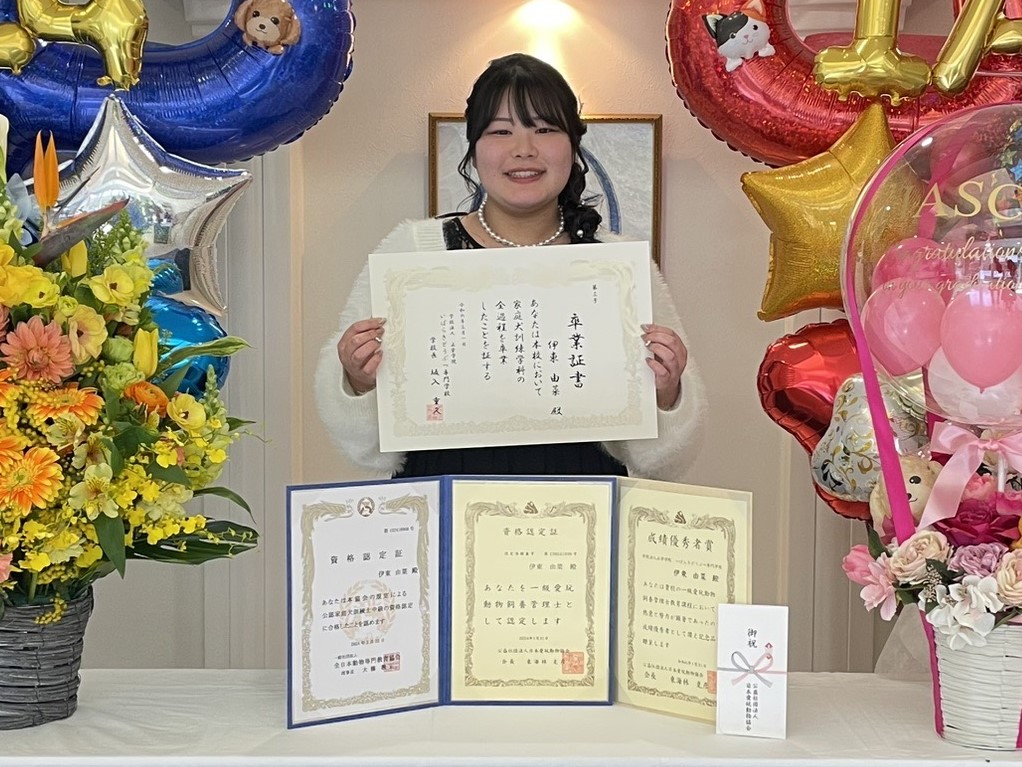 ASC
Congratulations
on your graduation
第三号
卒業証書
伊東 由菜 殿
あなたは本校において
家庭犬訓練学科の
全過程を卒業
したことを証する
学校長
資格認定証
伊東 由菜 殿
あなたは本協会の規定による
公認家庭犬訓練士中級の資格認定
に合格したことを認めます
全日本動物専門教育協会
資格認定証
伊東 由菜 殿
あなたを一級愛玩
動物飼養管理士と
して認定します
公益社団法人日本愛玩動物協会
会長 東海林 克彦
成績優秀者賞
伊東 由菜 殿
あなたは貴校の一級愛玩動物
飼養管理士教育課程において
成績優秀者として讃え記念品を
贈呈します
公益社団法人日本愛玩動物協会
会長 東海林 克彦
御祝
公益社団法人
日本愛玩動物協会